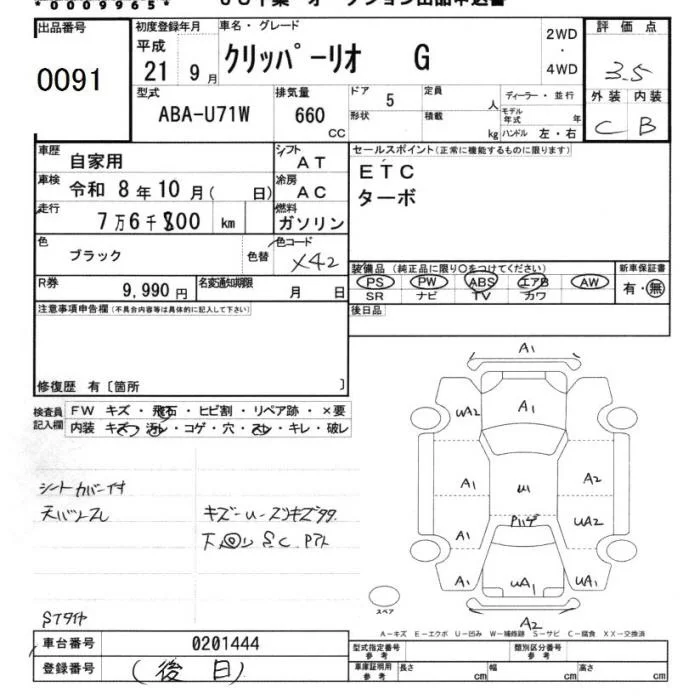 *0009965*
出品番号 初度登録年月 車名・グレード 2WD 評価点
0091 平成 21 9月 クリッパーリオ G ・ 4WD 3.5
型式 排気量 ドア 5 定員 人 ディーラー・並行 外装 内装
ABA-U71W 660 CC 形状 積載 kg モデル年式 年 ハンドル 左・右 C B
車歴 自家用 シフト AT セールスポイント(正常に機能するものに限ります)
車検 令和 8年10月( 日) 冷房 AC ETC
走行 7万6千800 km 燃料 ガソリン ターボ
色 ブラック 色替 色コード X42
装備品(純正品に限り〇をつけてください) 新車保証書
R券 9,990円 名変通知期限 月 日 PS PW ABS エアB AW 有・無
SR ナビ TV カワ
注意事項申告欄(不具合内容等は具体的に記入して下さい) 後日品
修復歴 有〔箇所 〕
検査員記入欄 FW キズ・飛石・ヒビ割・リペア跡・×要
内装 キズ・汚れ・コゲ・穴・スレ・キレ・破レ
シートカバー付
キズ-U-スリキズ
A1
UA2 A1
A1 U1 A2
A1 UA2
A1 UA1 UA1
A2
スペア
A-キズ E-エクボ U-凹み W-補修跡 S-サビ C-腐食 XX-交換済
車台番号 0201444 型式指定番号 参考 類別区分番号 参考
登録番号 (後日) 車庫証明用 参考 長さ cm 幅 cm 高さ cm